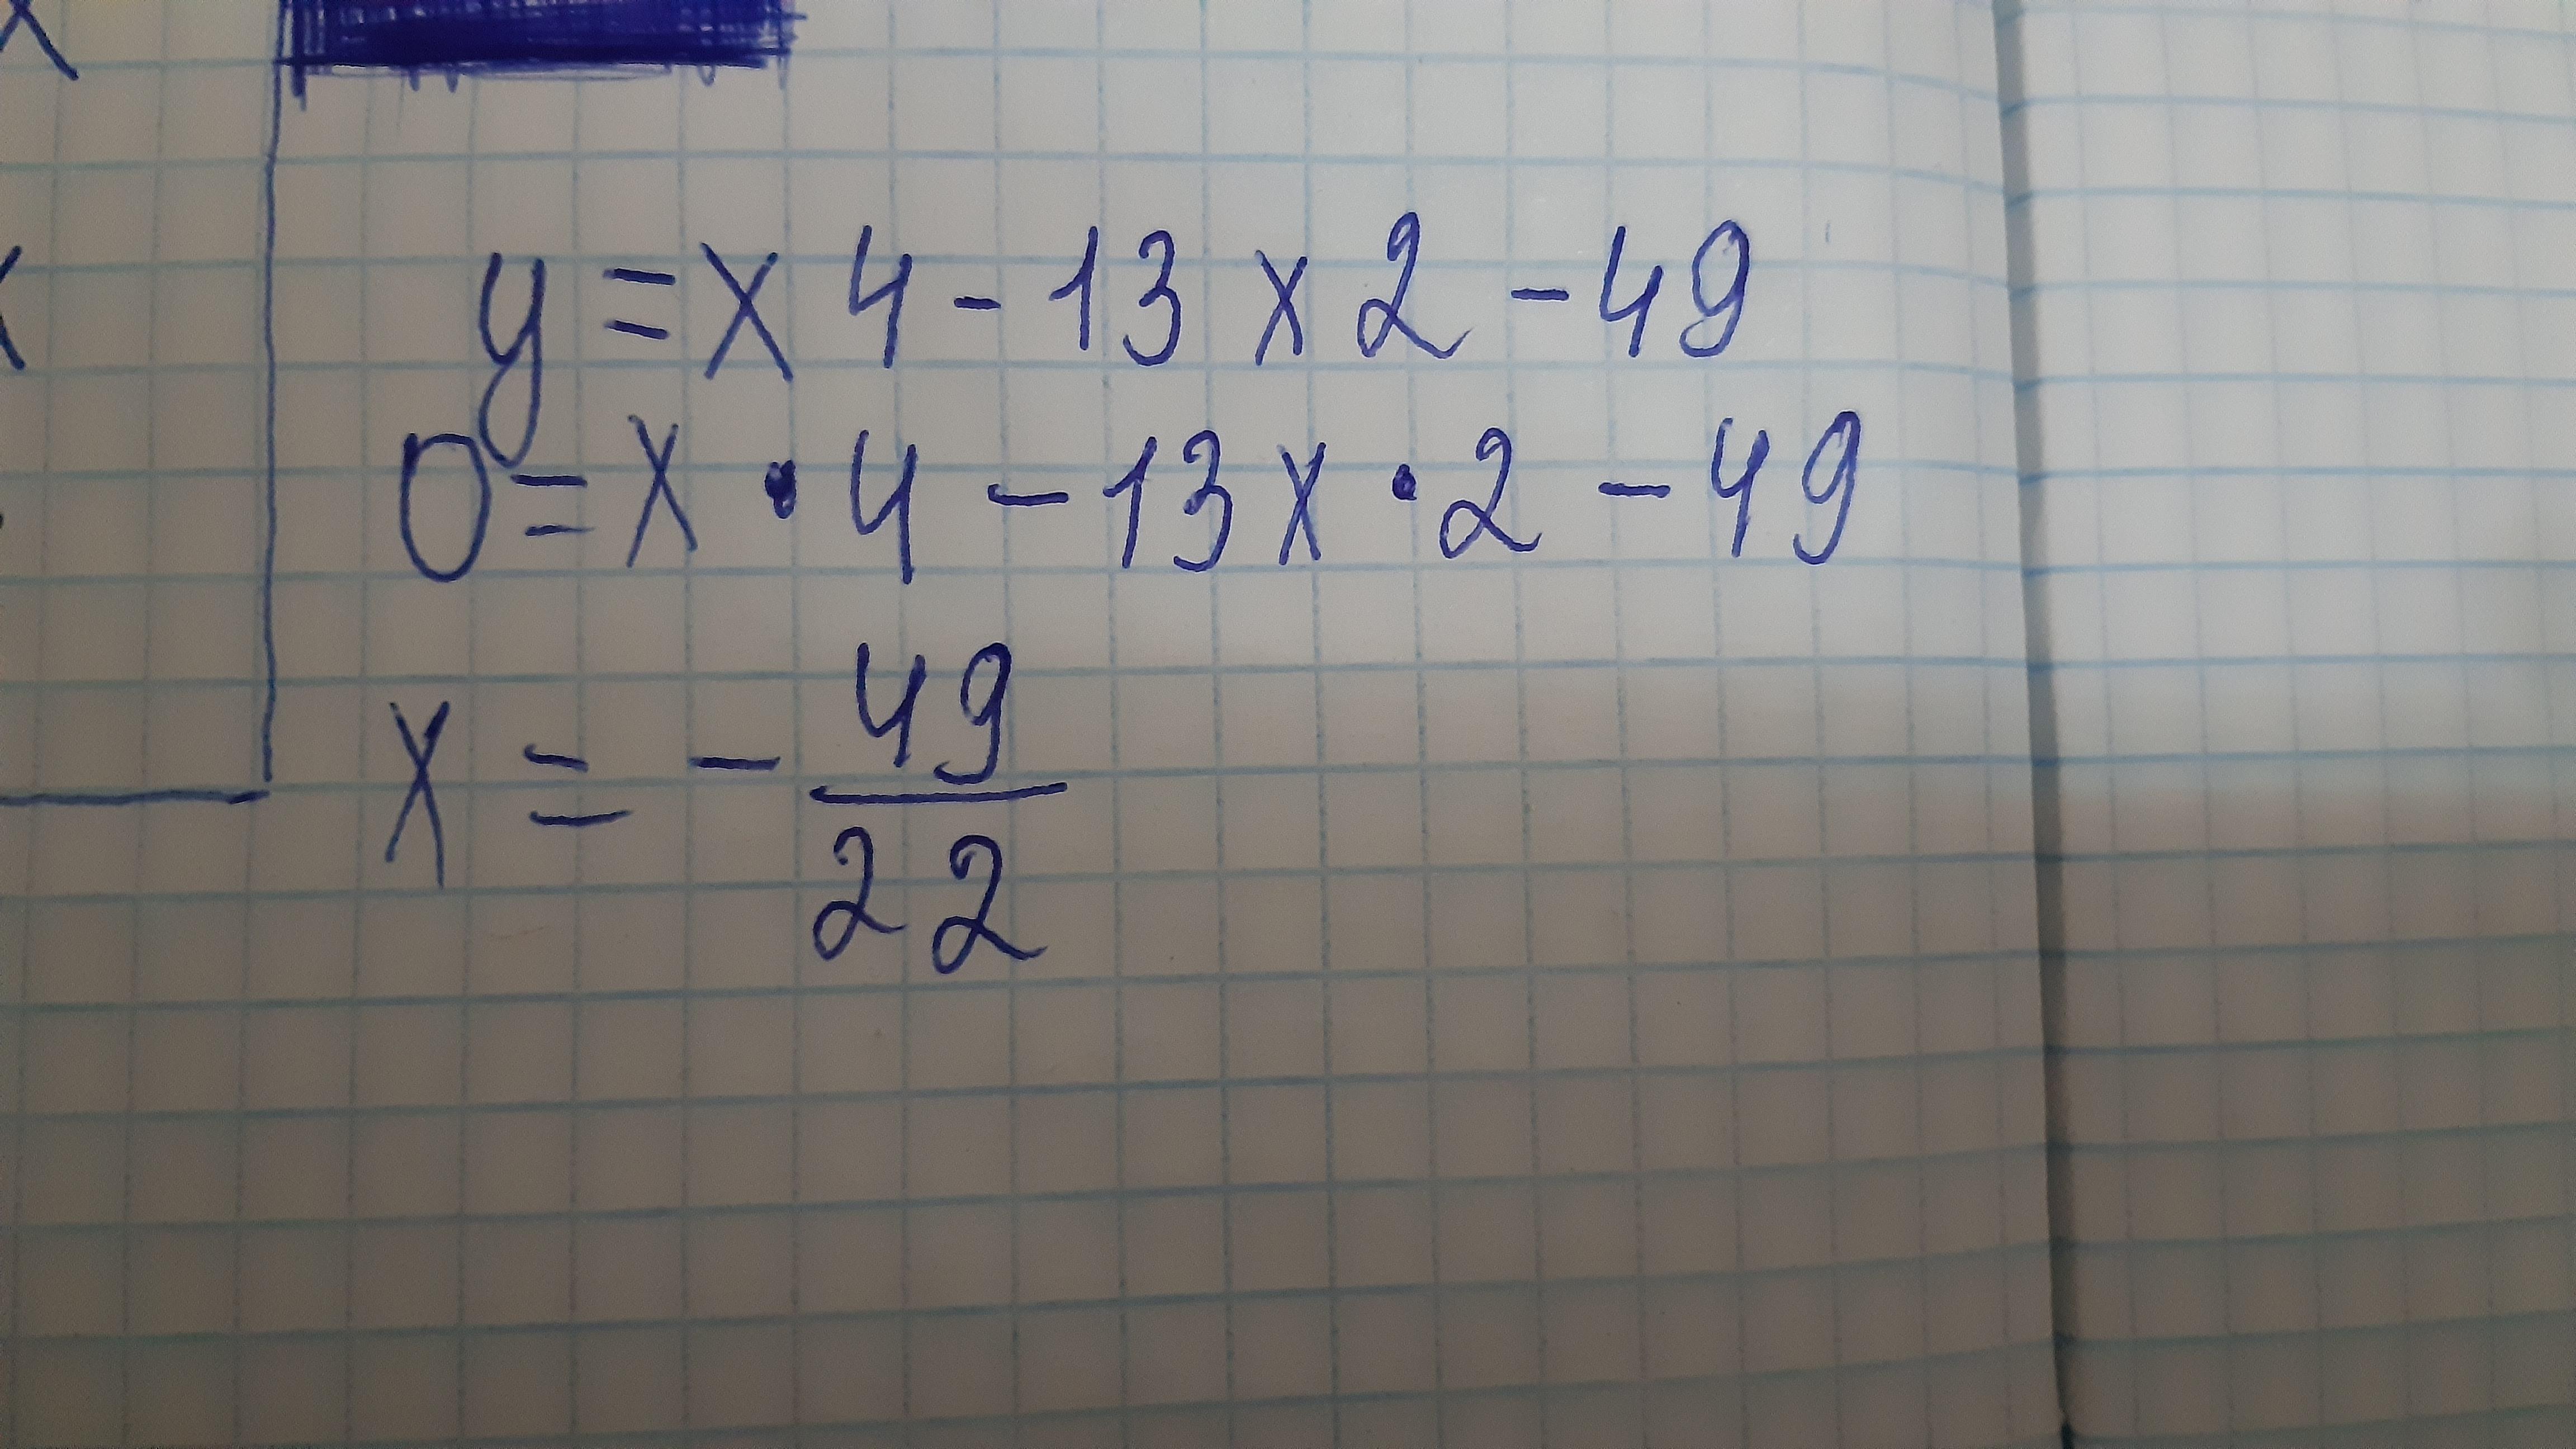 y = x 4 - 13 x 2 - 49
0 = x · 4 - 13x · 2 - 49
x = - 49
22